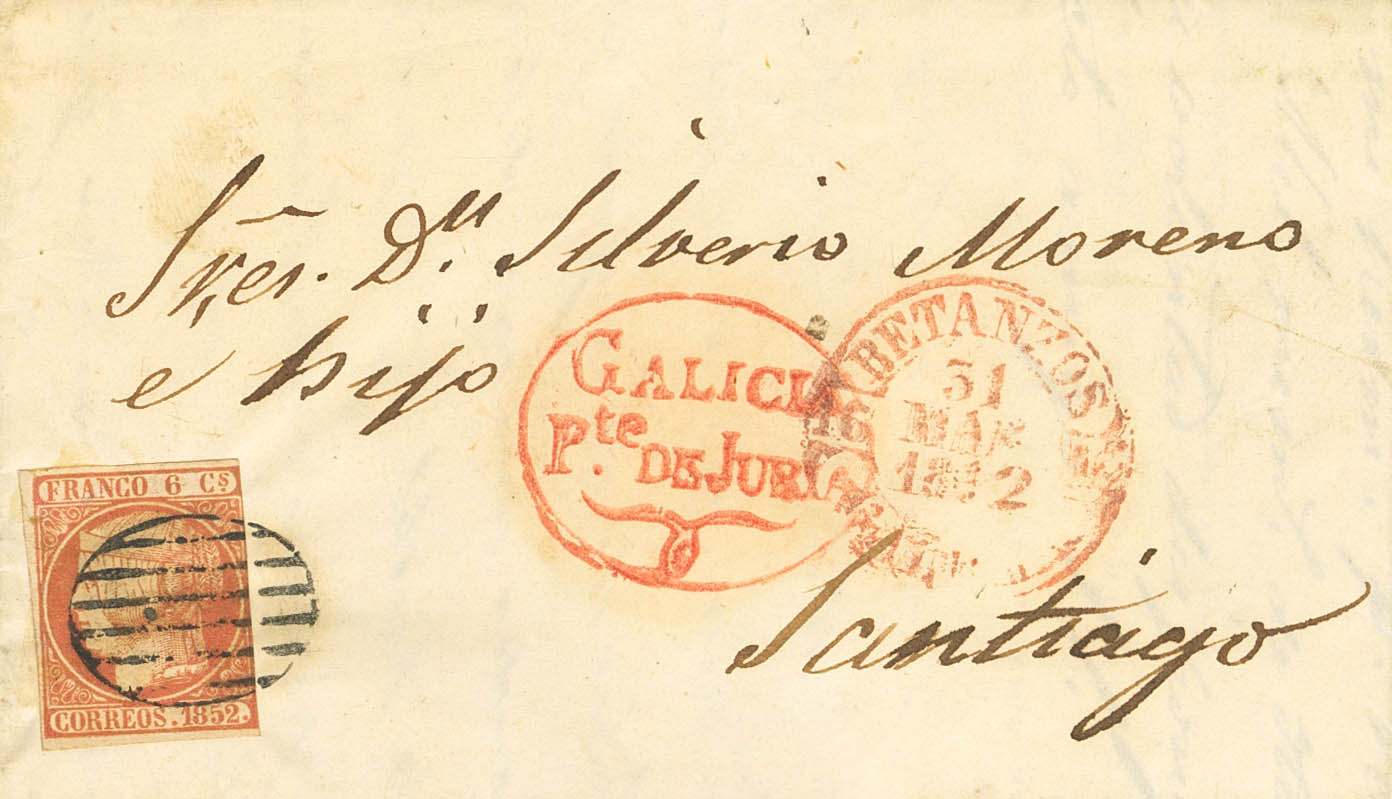 Sres. Dn. Silverio Moreno
e hijo
GALICIA
Pte. DE JUBIA
BETANZOS
31
MAR
1852
Santiago
FRANCO 6 Cs
CORREOS. 1852.